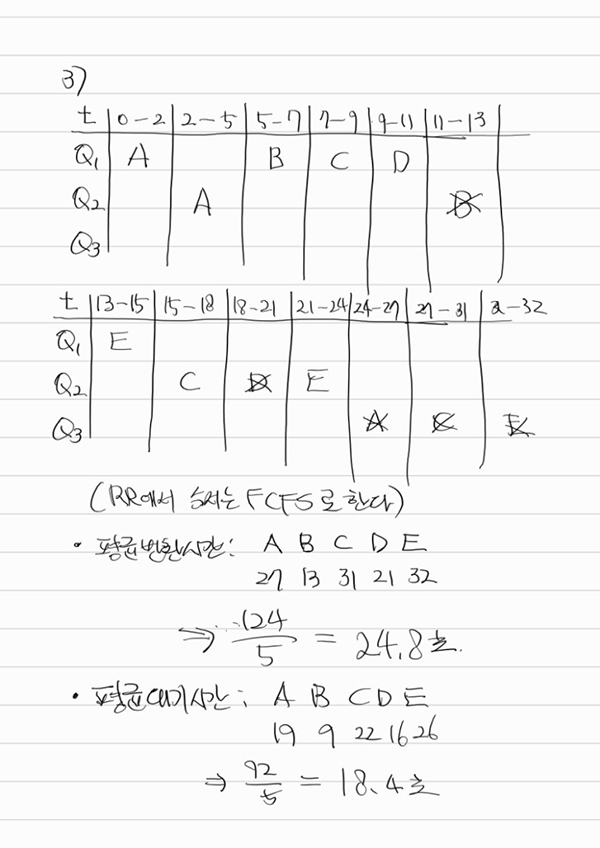 3)
t 0-2 2-5 5-7 7-9 9-11 11-13
Q1 A B C D
Q2 A B
Q3
t 13-15 15-18 18-21 21-24 24-27 27-31 31-32
Q1 E
Q2 C D E
Q3 A C E
(RR에서 순서는 FCFS로 한다)
• 평균반환시간: A B C D E
27 13 31 21 32
⇒ 124/5 = 24.8초.
• 평균대기시간: A B C D E
19 9 22 16 26
⇒ 92/5 = 18.4초